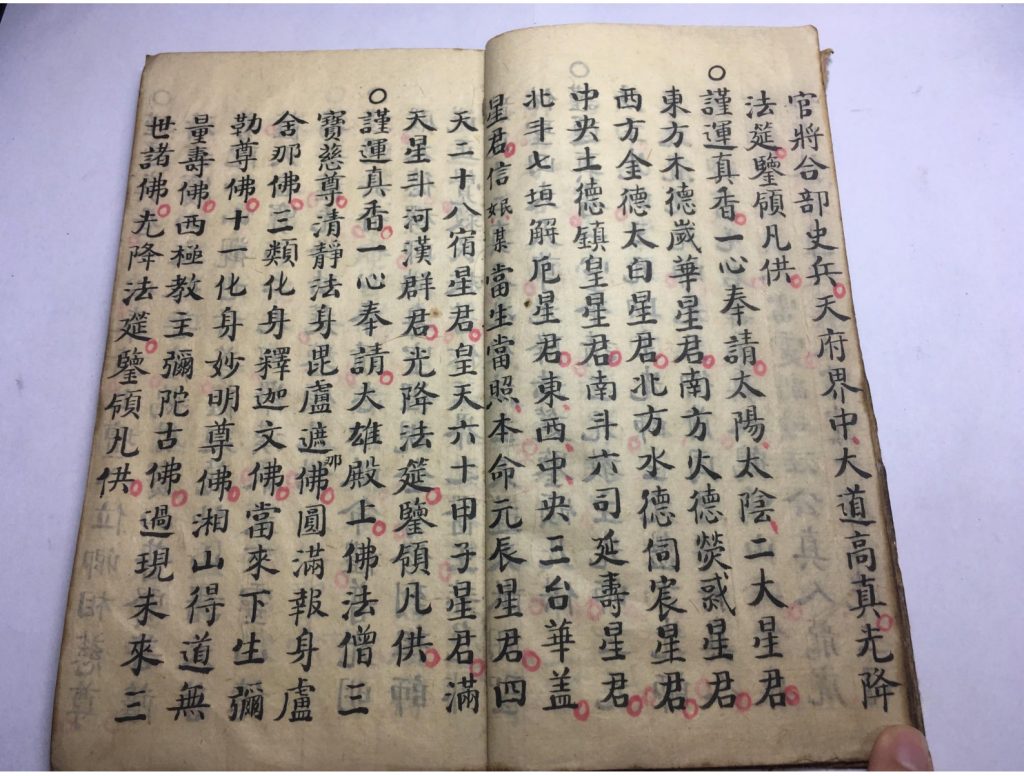 官將合部史兵。天府界中、大道高真。光降
法筵鑒領凡供。
○謹運真香一心奉請太陽、太陰、二大星君。
東方木德歲華星君。南方火德熒惑星君。
西方金德太白星君。北方水德伺宸星君。
中央土德鎮皇星君。南斗六司延壽星君。
北斗七垣解厄星君。東、西、中、央三台華盖
星君。信民某當生當照、本命元辰星君。四
天二十八宿星君。皇天六十甲子星君。滿
天星斗河漢群君。光降法筵。鑒領凡供。
○謹運真香一心奉請。大雄殿上。佛法僧三
寶慈尊。清靜法身毘盧遮那佛。圓滿報身盧
舍那佛。三類化身釋迦文佛。當來下生彌
勒尊佛。十一化身妙明尊佛。湘山得道無
量壽佛。西極教主彌陀古佛。過現未來三
世諸佛。光降法筵。鑒領凡供。